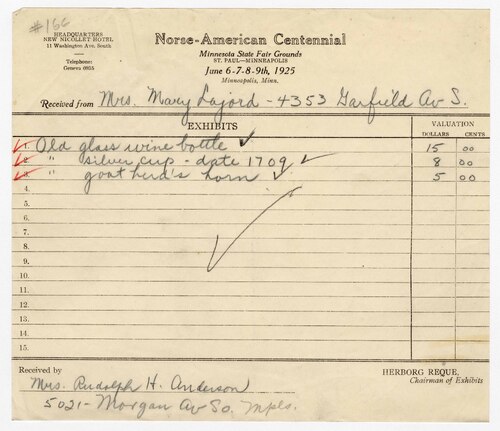 #166
HEADQUARTERS
NEW NICOLLET HOTEL
11 Washington Ave. South
Telephone:
Geneva 0855
Norse-American Centennial
Minnesota State Fair Grounds
ST. PAUL—MINNEAPOLIS
June 6-7-8-9th, 1925
Minneapolis, Minn.
Received from Mrs. Mary Lajord - 4353 Garfield Av S.
EXHIBITS
VALUATION
DOLLARS CENTS
1. Old glass wine bottle ✓ 15 00
2. " silver cup - date 1709 ✓ 8 00
3. " goat herd's horn ✓ 5 00
4.
5.
6.
7.
8.
9.
10.
11.
12.
13.
14.
15.
Received by
Mrs. Rudolph H. Anderson
5021 - Morgan Av So. Mpls.
HERBORG REQUE,
Chairman of Exhibits